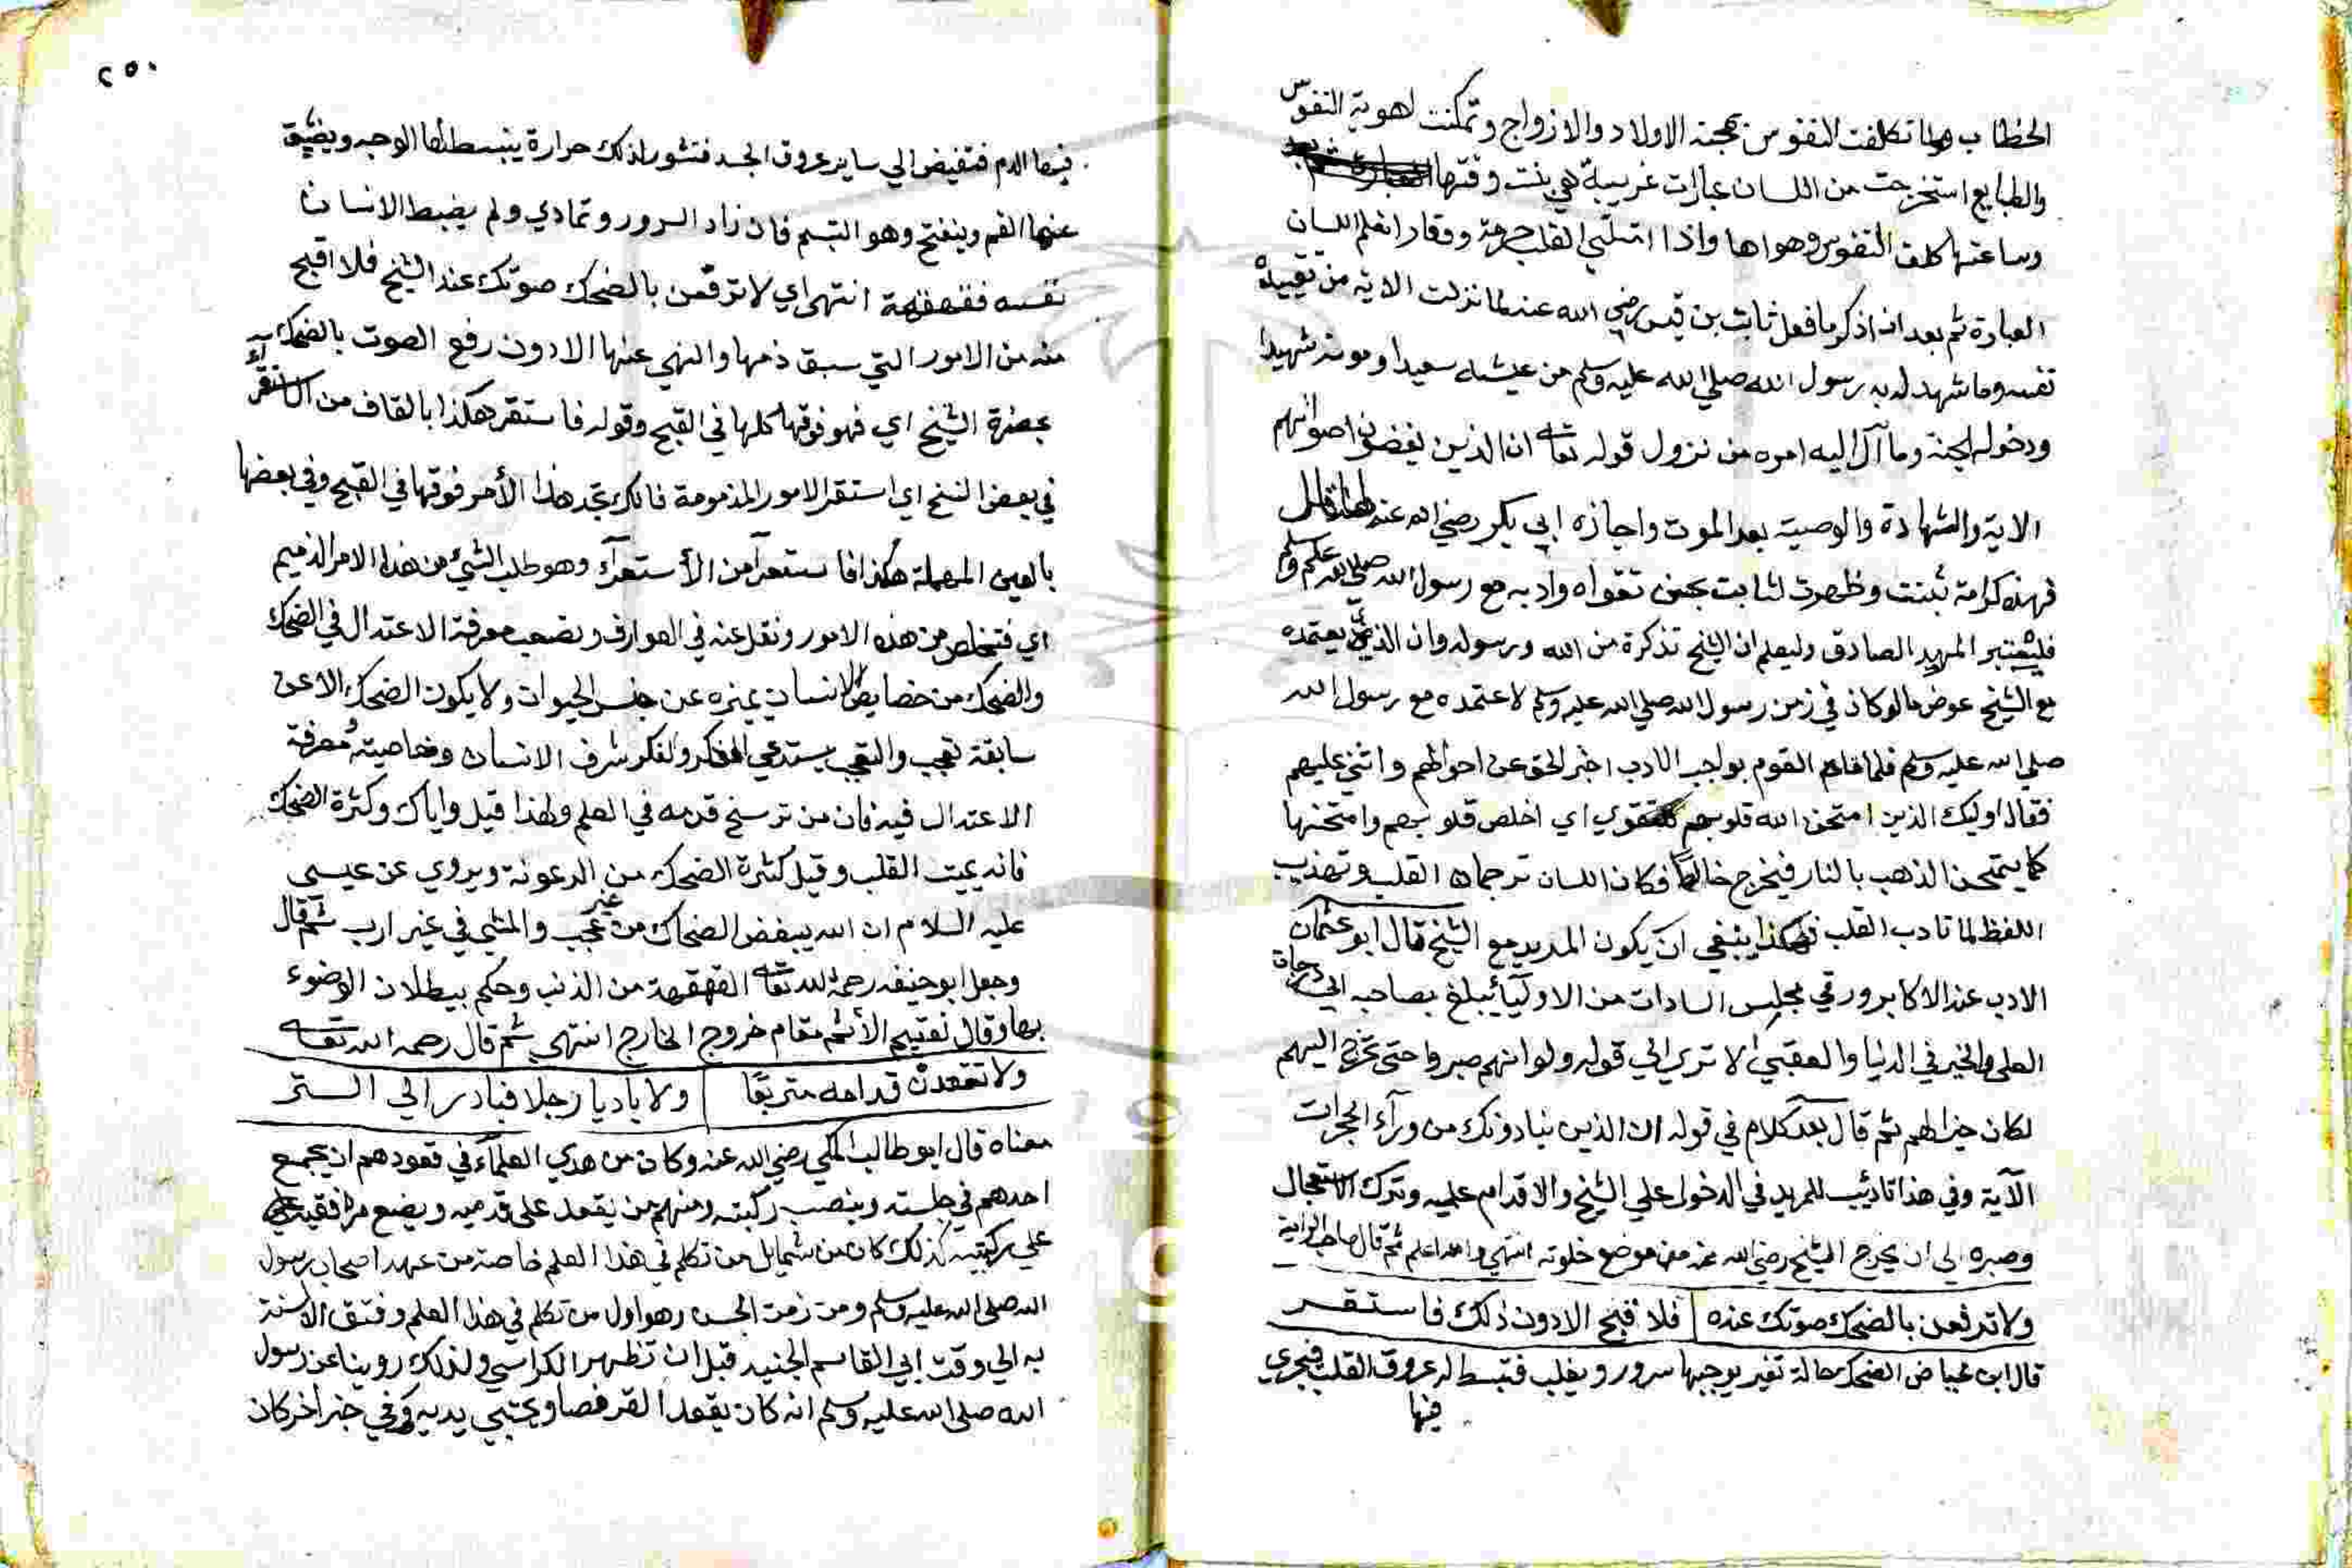 الخطاب ولما تكلفت النفوس محبة الاولاد والازواج وتمكنت لهوية النفوس
والطبايع استخرجت من اللسان عبارات غريبة هي بنت وقتها
وساعتها كلفت النفوس وهواها واذا امتلئ القلب حرمة ووقارا تعلم اللسان
العبارة ثم بعد ان ذكر ما فعل ثابت بن قيس رضي الله عنه لما نزلت الاية من تقييده
نفسه وما شهد له به رسول الله صلي الله عليه وسلم من عيشه سعيدا وموته شهيدا
ودخوله الجنة وما آل اليه امره من نزول قوله تعا ان الذين يغضون اصواتهم
الاية والشهادة والوصية بعد الموت واجازه ابي بكر رضي الله عنه لها قال
فهذه كرامة ثبنت وظهرت لثابت بحسن تقواه وادبه مع رسول الله صلي الله عليه وسلم
فليعتبر المريد الصادق وليعلم ان الشيخ تذكرة من الله ورسوله وان الذي يعتمده
مع الشيخ عوض ما لو كان في زمن رسول الله صلي الله عليه وسلم لاعتمده مع رسول الله
صلي الله عليه وسلم فلما قام القوم بواجب الادب اخبر الحق عن احوالهم واثني عليهم
فقال اوليك الذين امتحن الله قلوبهم للتقوي اي اخلص قلوبهم وامتحنها
كما يمتحن الذهب بالنار فيخرج خالصا فكان اللسان ترجمان القلب وتهذيب
اللفظ لما تادب القلب فهكذا ينبغي ان يكون المريد مع الشيخ قال ابو عثمان
الادب عند الاكابر وفي مجليس السادات من الاوليآء يبلغ بصاحبه الي درجات
العلي والخير في الدنيا والعقبي الا تري الي قوله ولو انهم صبروا حتى تخرج اليهم
لكان خيرا لهم ثم قال بعد كلام في قوله ان الذين ينادونك من ورآء الحجرات
الآية وفي هذا تاديب للمريد في الدخول علي الشيخ والاقدام عليه وترك الاستعجال
وصبره الي ان يخرج الشيخ رضي الله عنه من موضع خلوته انتهي والله اعلم ثم قال صاحب الرائية
ولا ترفعن بالضحك صوتك عنده فلا قبح الا دون ذلك فاستقر
قال ابن عياض الضحك حالة تغير يوجبها سرور ويغلب فتبسط له عروق القلب فيجري
فيها
٢٥٠
فيها الدم فتفيض الي ساير عروق الجسد فتثور لذلك حرارة ينبسط لها الوجه ويضيق
عنها الفم وينفتح وهو التبسم فان زاد السرور وتمادي ولم يضبط الانسان
نفسه فقهقهة انتهى اي لا ترفعن بالضحك صوتك عند الشيخ فلا اقبح
منه من الامور التي سبق ذمها والنهي عنها الا دون رفع الصوت بالضحك
بحضرة الشيخ اي فهو فوقها كلها في القبح وقوله فاستقر هكذا بالقاف من الاستقرآء
في بعض النسخ اي استقر الامور المذمومة فانك تجد هذا الأمر فوقها في القبح وفي بعضها
بالعين المهملة هكذا فاستعد من الأستعدآد وهو طلب الشيء من هذا الامر الذميم
اي فتخلص من هذه الامور ونقل عنه في العوارف ويصعب معرفة الاعتدال في الضحك
والضحك من خصايص الانسان يميزه عن جنس الحيوان ولا يكون الضحك الا عن
سابقة تعجب والتعجب يستدعي الفكر والفكر شرف الانسان وخاصيته ومعرفة
الاعتدال فيه فان من ترسخ قدمه في العلم ولهذا قيل واياك وكثرة الضحك
فانه يميت القلب وقيل كثرة الضحك من الرعونة ويروي عن عيسي
عليه السلام ان الله يبغض الضحاك من غير عجب والمشي في غير ارب ثم قال
وجعل ابو حنيفه رحمه الله تعا القهقهة من الذنب وحكم ببطلان الوضوء
بها وقال نقيم الأثم مقام خروج الخارج انتهي ثم قال رحمه الله تعا
ولا تقعدن قدامه متربعا ولا باديا رجلا فبادر الي الستر
معناه قال ابو طالب المكي رضي الله عنه وكان من هدي العلمآء في قعودهم ان يجمع
احدهم في جلسته وينصب ركبته ومنهم من يقعد على قدميه ويضع مرفقيه
علي ركبتيه كذلك كان من شمايل من تكلم في هذا العلم خاصة من عهد اصحاب رسول
الله صلى الله عليه وسلم ومن زمن الحسن وهو اول من تكلم في هذا العلم وفتق الالسنة
به الي وقت ابي القاسم الجنيد قبل ان تظهر الكراسي ولذلك روينا عن رسول
الله صلى الله عليه وسلم انه كان يقعد القرفصا ويحتبي بيديه وفي خبر آخر كان